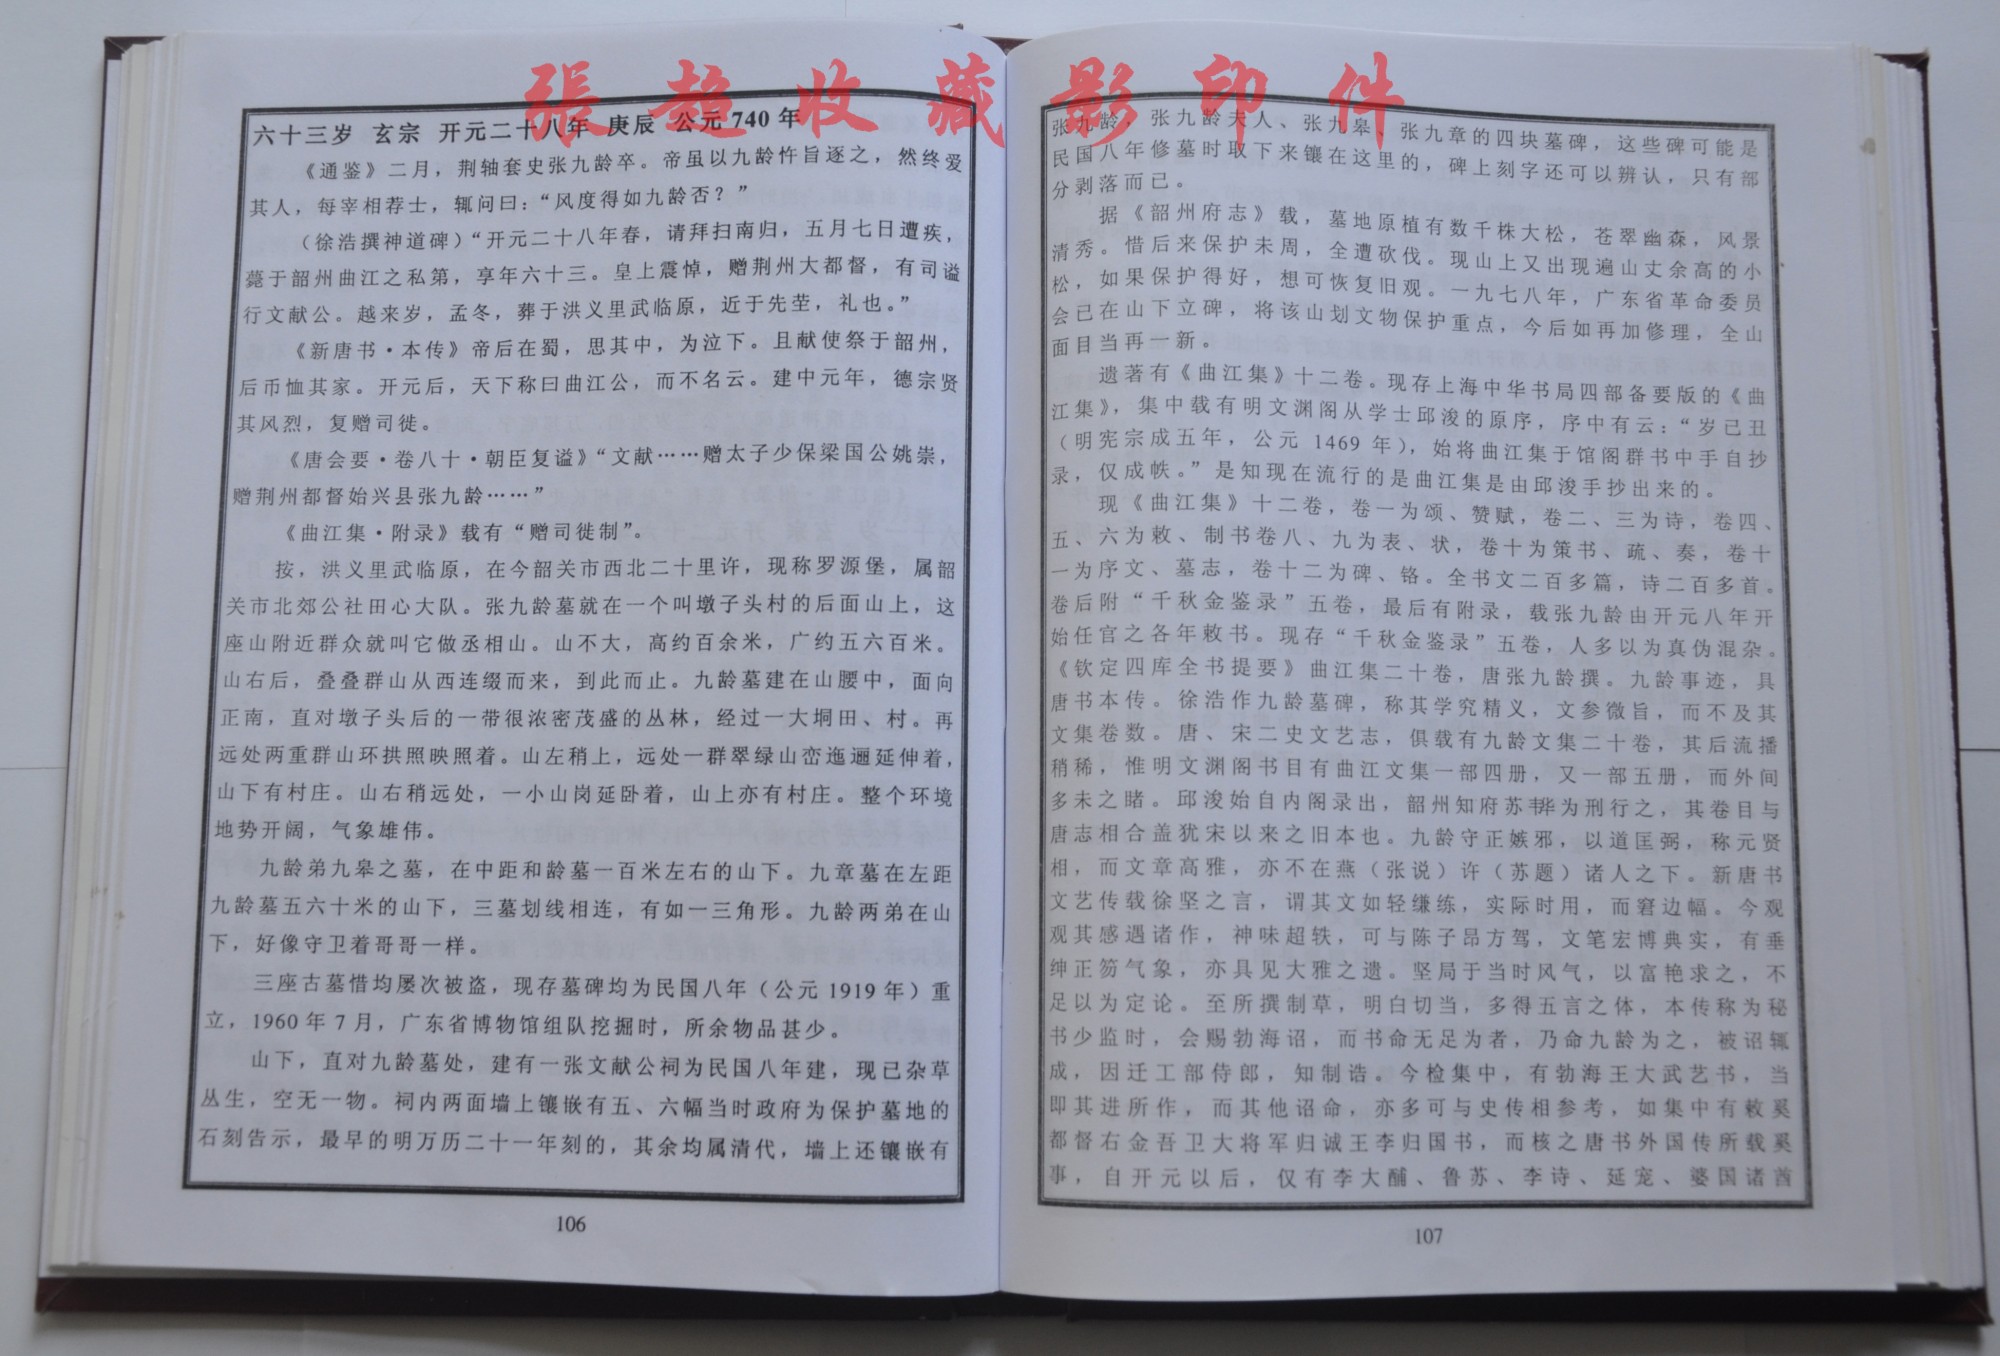 張趙收藏影印件
六十三岁 玄宗 开元二十八年 庚辰 公元740年
《通鉴》二月，荆轴套史张九龄卒。帝虽以九龄忤旨逐之，然终爱
其人，每宰相荐士，辄问曰：“风度得如九龄否？”
（徐浩撰神道碑）“开元二十八年春，请拜扫南归，五月七日遭疾，
薨于韶州曲江之私第，享年六十三。皇上震悼，赠荆州大都督，有司谥
行文献公。越来岁，孟冬，葬于洪义里武临原，近于先茔，礼也。”
《新唐书·本传》帝后在蜀，思其中，为泣下。且献使祭于韶州，
后币恤其家。开元后，天下称曰曲江公，而不名云。建中元年，德宗贤
其风烈，复赠司徙。
《唐会要·卷八十·朝臣复谥》“文献……赠太子少保梁国公姚崇，
赠荆州都督始兴县张九龄……”
《曲江集·附录》载有“赠司徙制”。
按，洪义里武临原，在今韶关市西北二十里许，现称罗源堡，属韶
关市北郊公社田心大队。张九龄墓就在一个叫墩子头村的后面山上，这
座山附近群众就叫它做丞相山。山不大，高约百余米，广约五六百米。
山右后，叠叠群山从西连缀而来，到此而止。九龄墓建在山腰中，面向
正南，直对墩子头后的一带很浓密茂盛的丛林，经过一大垌田、村。再
远处两重群山环拱照映照着。山左稍上，远处一群翠绿山峦迤逦延伸着，
山下有村庄。山右稍远处，一小山岗延卧着，山上亦有村庄。整个环境
地势开阔，气象雄伟。
九龄弟九皋之墓，在中距和龄墓一百米左右的山下。九章墓在左距
九龄墓五六十米的山下，三墓划线相连，有如一三角形。九龄两弟在山
下，好像守卫着哥哥一样。
三座古墓惜均屡次被盗，现存墓碑均为民国八年（公元1919年）重
立，1960年7月，广东省博物馆组队挖掘时，所余物品甚少。
山下，直对九龄墓处，建有一张文献公祠为民国八年建，现已杂草
丛生，空无一物。祠内两面墙上镶嵌有五、六幅当时政府为保护墓地的
石刻告示，最早的明万历二十一年刻的，其余均属清代，墙上还镶嵌有
106
张九龄，张九龄夫人、张九皋、张九章的四块墓碑，这些碑可能是
民国八年修墓时取下来镶在这里的，碑上刻字还可以辨认，只有部
分剥落而已。
据《韶州府志》载，墓地原植有数千株大松，苍翠幽森，风景
清秀。惜后来保护未周，全遭砍伐。现山上又出现遍山丈余高的小
松，如果保护得好，想可恢复旧观。一九七八年，广东省革命委员
会已在山下立碑，将该山划文物保护重点，今后如再加修理，全山
面目当再一新。
遗著有《曲江集》十二卷。现存上海中华书局四部备要版的《曲
江集》，集中载有明文渊阁从学士邱浚的原序，序中有云：“岁己丑
（明宪宗成五年，公元 1469 年），始将曲江集于馆阁群书中手自抄
录，仅成帙。”是知现在流行的是曲江集是由邱浚手抄出来的。
现《曲江集》十二卷，卷一为颂、赞赋，卷二、三为诗，卷四、
五、六为敕、制书卷八、九为表、状，卷十为策书、疏、奏，卷十
一为序文、墓志，卷十二为碑、铬。全书文二百多篇，诗二百多首。
卷后附“千秋金鉴录”五卷，最后有附录，载张九龄由开元八年开
始任官之各年敕书。现存“千秋金鉴录”五卷，人多以为真伪混杂。
《钦定四库全书提要》曲江集二十卷，唐张九龄撰。九龄事迹，具
唐书本传。徐浩作九龄墓碑，称其学究精义，文参微旨，而不及其
文集卷数。唐、宋二史文艺志，俱载有九龄文集二十卷，其后流播
稍稀，惟明文渊阁书目有曲江文集一部四册，又一部五册，而外间
多未之睹。邱浚始自内阁录出，韶州知府苏韡为刑行之，其卷目与
唐志相合盖犹宋以来之旧本也。九龄守正嫉邪，以道匡弼，称元贤
相，而文章高雅，亦不在燕（张说）许（苏题）诸人之下。新唐书
文艺传载徐坚之言，谓其文如轻缣练，实际时用，而窘边幅。今观
观其感遇诸作，神味超轶，可与陈子昂方驾，文笔宏博典实，有垂
绅正笏气象，亦具见大雅之遗。坚局于当时风气，以富艳求之，不
足以为定论。至所撰制草，明白切当，多得五言之体，本传称为秘
书少监时，会赐勃海诏，而书命无足为者，乃命九龄为之，被诏辄
成，因迁工部侍郎，知制诰。今检集中，有勃海王大武艺书，当
即其进所作，而其他诏命，亦多可与史传相参考，如集中有敕奚
都督右金吾卫大将军归诚王李归国书，而核之唐书外国传所载奚
事，自开元以后，仅有李大酺、鲁苏、李诗、延宠、婆国诸酋
107